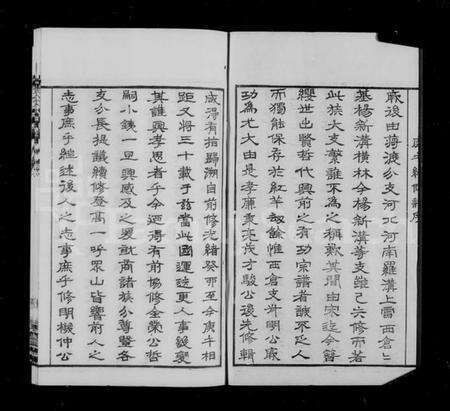 庚午續修譜序
厥後由蔣渡分支河北河南羅溝上雷西倉上
基楊新溝橫林余楊新溝等支雖已失修而著
此族大支繁誰不為之稱歎其間由宋迄今簪
纓世出賢哲代興前之有功宗譜者誠不乏人
而獨能保存於紅羊劫餘惟西倉支卉明公厥
功為尤大由是孝廉東亮茂才駿公後先修輯
咸得有指歸溯自前修光緒癸卯至今庚午相
距又將三十載于茲當此國運迭更人事變
其誰興孝思者乎今適得有前協修金榮公哲
嗣小錢一旦興感及之爰就商諸族分尊暨各
支分長提議續修登高一呼眾山皆響前人之
志事庶乎繼述後人之志事庶乎修明機仲公